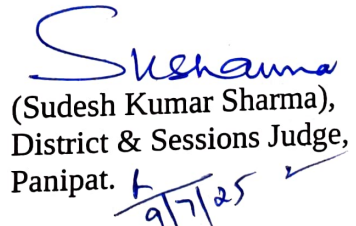 Sksharma
(Sudesh Kumar Sharma),
District & Sessions Judge,
Panipat.
9/7/25